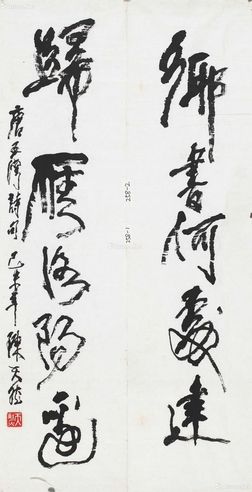 鄉書何處達
歸雁洛陽邊
唐王灣詩句 己未年 陳天然